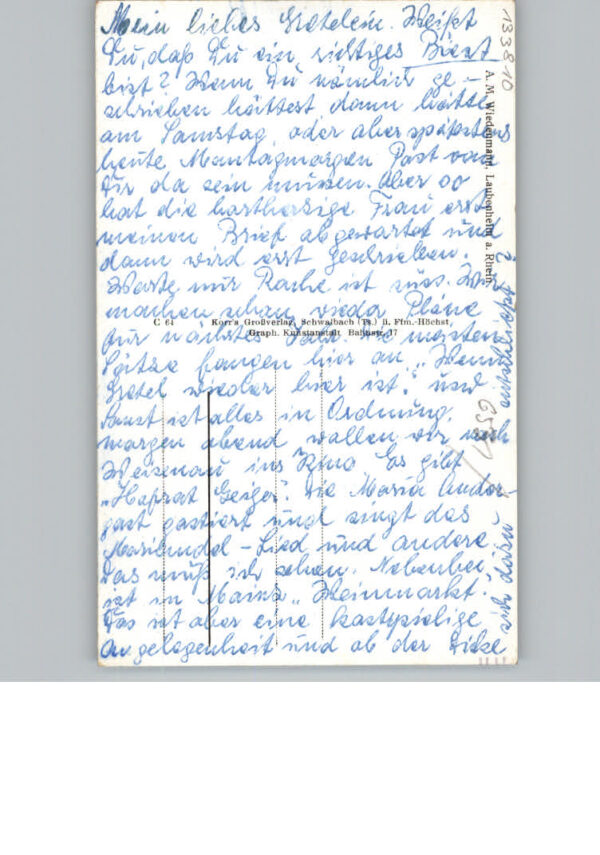 Mein liebes Gretelein. Weißt
Du, daß Du ein richtiges Biest
bist? Wenn Du nämlich ge-
schrieben hättest dann hätte
am Samstag, oder aber spätestens
heute Montagmorgen Post von
Dir da sein müssen. Aber so
hat die hartherzige Frau erst
meinen Brief abgewartet und
dann wird erst geschrieben.
Warte nur Rache ist süss. Wir
machen schon wieder Pläne
für nächstes Jahr. Die meisten
Sätze fangen hier an „Wenn
Gretel wieder hier ist." und
sonst ist alles in Ordnung.
morgen abend wollen wir nach
Weisenau ins Kino Es gibt
„Hofrat Geiger". Die Maria Ander-
gast gastiert und singt das
Mariandel-Lied und andere.
Das muß ich sehen. Nebenbei
ist in Mainz „Weinmarkt".
Das ist aber eine kostspielige
Angelegenheit und ob der Dicke
sich dazu entschließt?
C 64 Korr's Großverlag, Schwalbach (Ts.) ü. Ffm.-Höchst,
Graph. Kunstanstalt Bahnstr. 17
A. M. Wiedenmann, Laubenheim a. Rhein.
133810